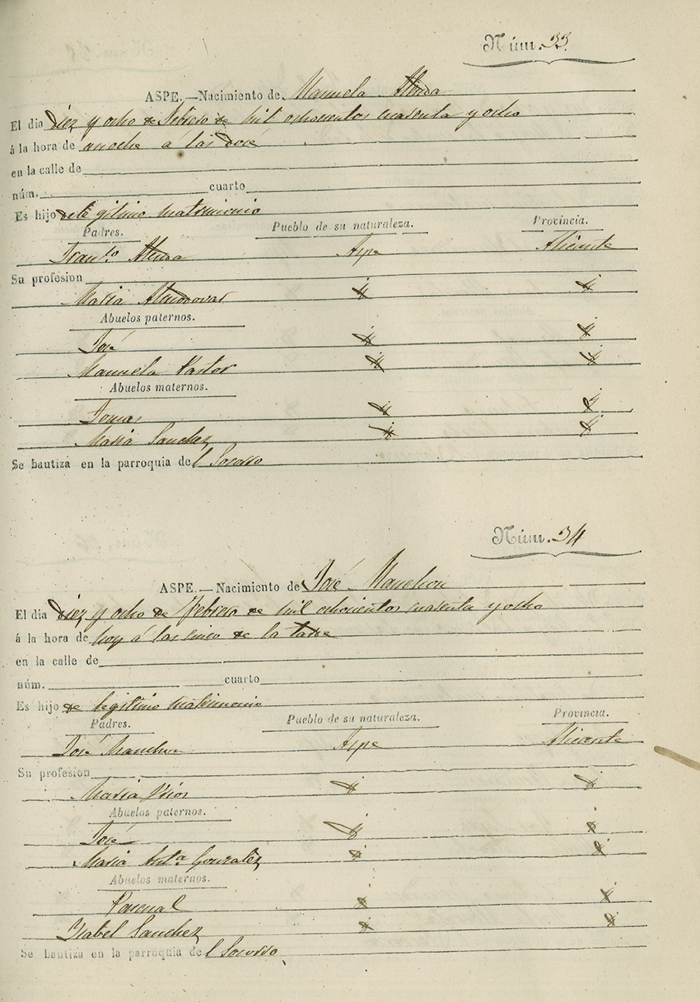 Núm. 33
ASPE.—Nacimiento de Manuela
El dia diez y ocho de Febrero de mil ochocientos cuarenta y ocho
á la hora de anoche a las doce
en la calle de
núm. cuarto
Es hijo de legitimo matrimonio
Padres. Pueblo de su naturaleza. Provincia.
Fran.co Aspe Alicante
Su profesion
Maria Almodovar
Abuelos paternos.
José
Manuela Pastor
Abuelos maternos.
Tomas
Maria Sanchez
Se bautiza en la parroquia del Socorro
Núm. 34
ASPE.—Nacimiento de José Manchon
El dia diez y ocho de Febrero de mil ochocientos cuarenta y ocho
á la hora de hoy á las cinco de la tarde
en la calle de
núm. cuarto
Es hijo de legitimo matrimonio
Padres. Pueblo de su naturaleza. Provincia.
José Manchon Aspe Alicante
Su profesion
Maria
Abuelos paternos.
José
Maria Ant.a Gonzalez
Abuelos maternos.
Pascual
Ysabel Sanchez
Se bautiza en la parroquia del Socorro